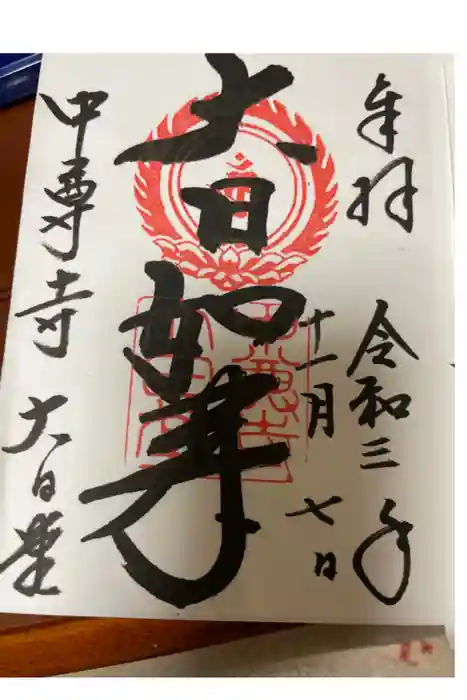 奉拝
令和三年
十一月
七日
大日如来
中尊寺 大日堂